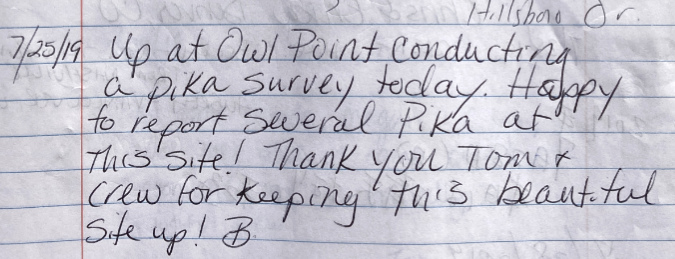 Hillsboro Or.
7/25/19 Up at Owl Point conducting
a pika survey today. Happy
to report several Pika at
this site! Thank you Tom &
crew for keeping this beautiful
site up! B